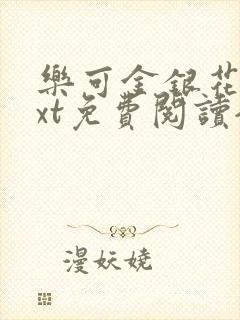 樂可金銀花
xt免費閱讀
漫妖嬈